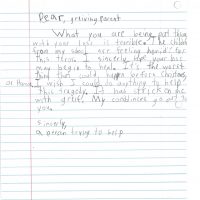 Dear, greiving parent
What you are being put throu
with your loss is terrible. The childre
from my school are feeling horid for
this terer. I sincerly hope your loss
may begin to heal. It's the worst
thing that could happen before Christmas,
or Hanuk I wish I could do anything to help
this tragedy. It has stricken me
with greif. My condolinces go out to
you.
Sincerly,
a person trying to help